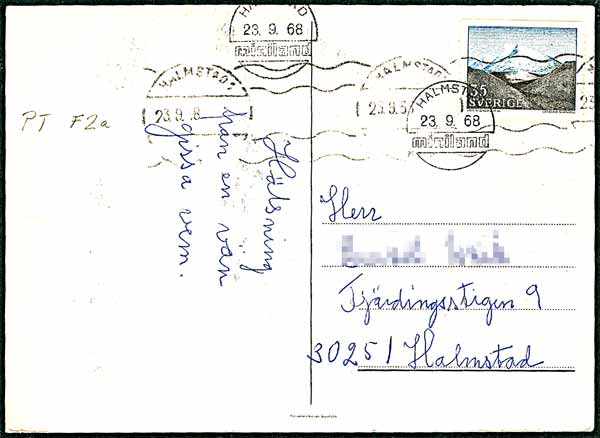 HALMSTAD
23. 9. 68
miniland
HALMSTAD 1
23.9. 8
HALMSTAD
23.9.6
35
SVERIGE
HALMSTAD
23. 9. 68
miniland
PT F2a
Hälsning
från en vän
gissa vem.
Herr
Fjärdingsstigen 9
30251 Halmstad